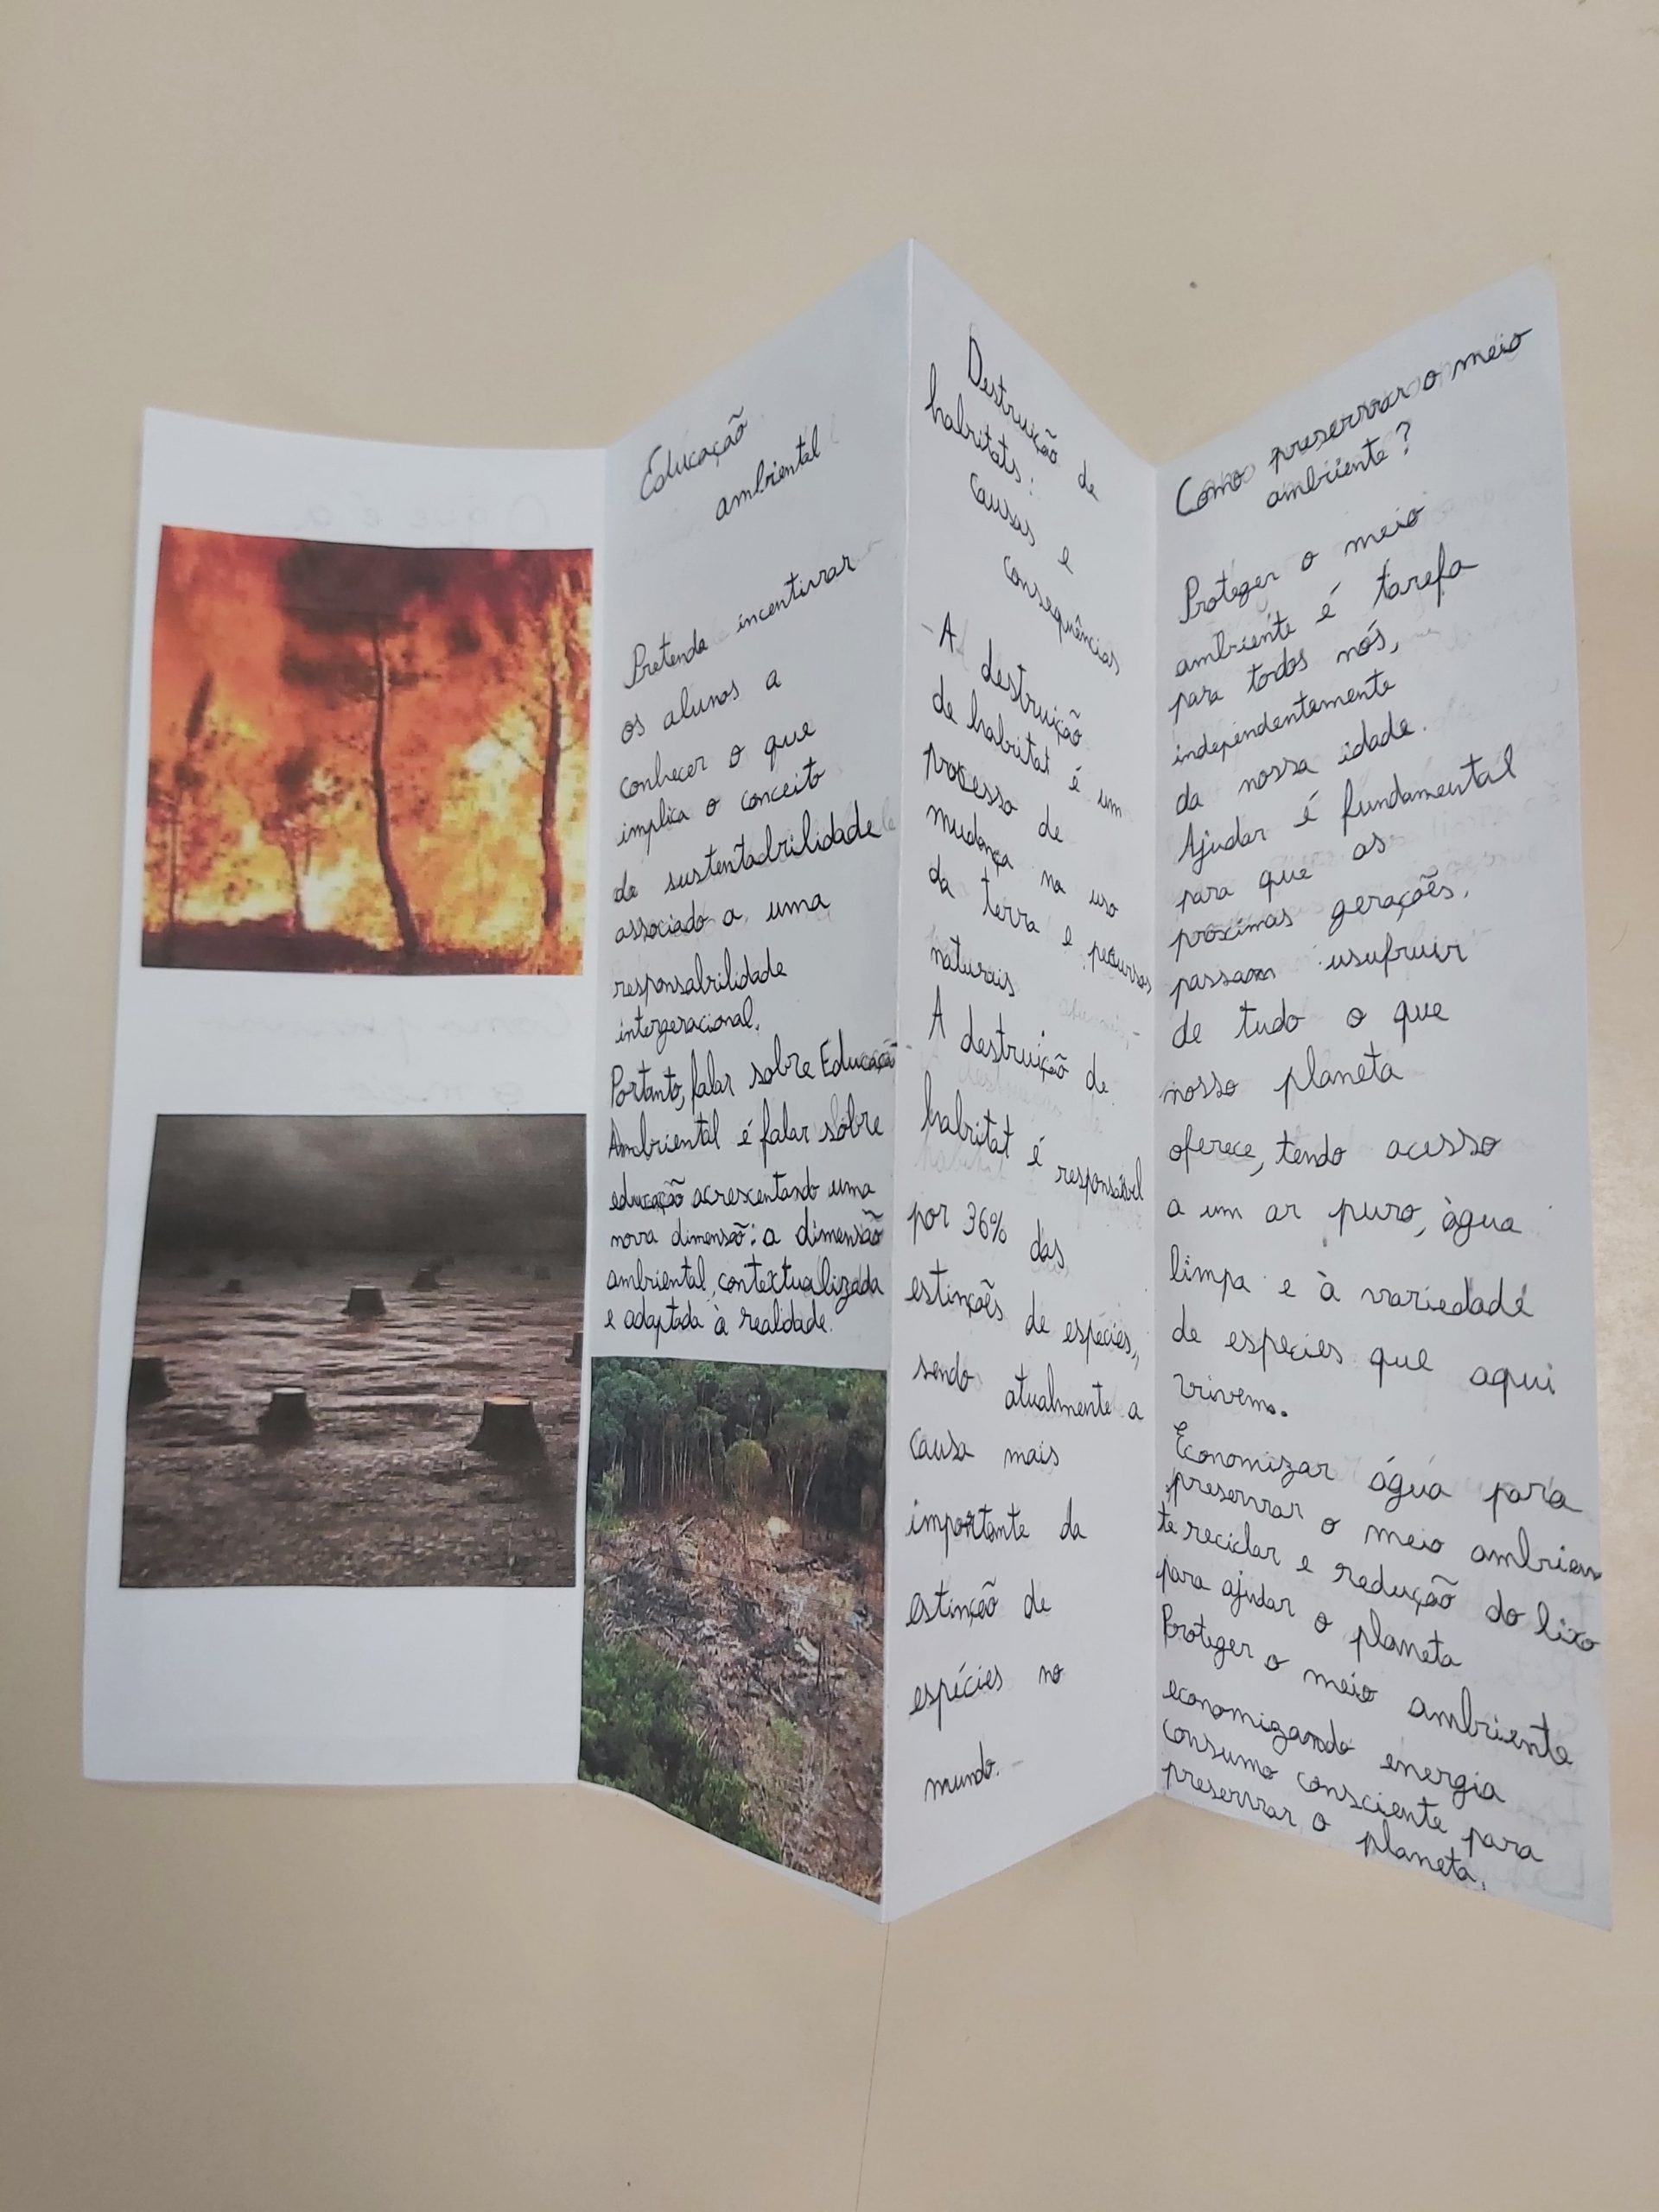 Educação
ambiental
Pretende incentivar
os alunos a
conhecer o que
implica o conceito
de sustentabilidade
associado a uma
responsabilidade
intergeracional.
Portanto, falar sobre Educação
Ambiental é falar sobre
educação acrescentando uma
nova dimensão: a dimensão
ambiental, contextualizada
e adaptada à realidade.
Destruição de
habitats:
causas e
consequências
- A destruição
de habitat é um
processo de
mudança no uso
da terra e recursos
naturais
A destruição de
habitat é responsável
por 36% das
estinções de espécies,
sendo atualmente a
causa mais
importante da
estinção de
espécies no
mundo.
Como preservar o meio
ambiente?
Proteger o meio
ambiente é tarefa
para todos nós,
independentemente
da nossa idade.
Ajudar é fundamental
para que as
proximas gerações,
possam usufruir
de tudo o que
nosso planeta
oferece, tendo acesso
a um ar puro, àgua
limpa e à variedade
de espécies que aqui
vivem.
Economizar água para
preservar o meio ambien
te reciclar e redução do lixo
para ajudar o planeta
Proteger o meio ambiente
economizando energia
consumo consciente para
preservar o planeta.